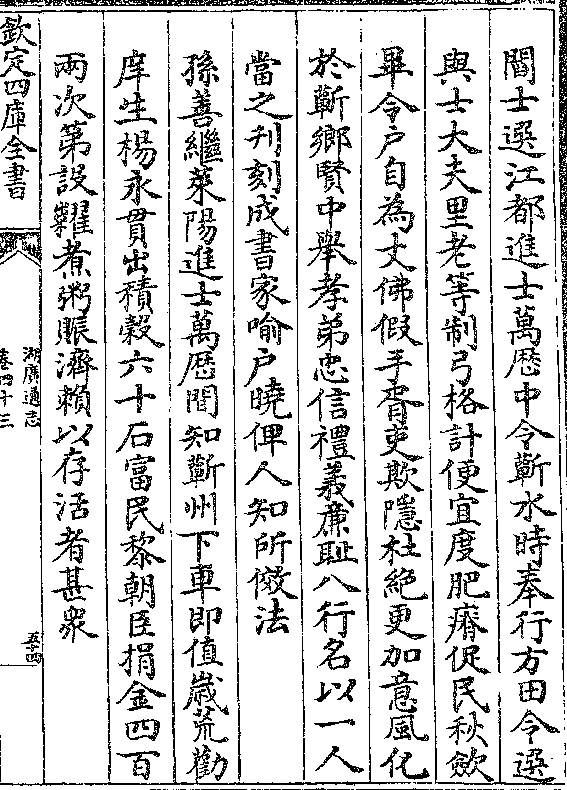 閻士選江都進士萬厯中令蘄水時奉行方田令選
與士大夫里老等制弓格計便宜度肥瘠促民秋歛
畢令户自為丈佛假手胥吏欺隱杜絶更加意風化
於蘄鄉賢中舉孝弟忠信禮義亷耻八行名以一人
當之刋刻成書家喻户曉俾人知所傚法
孫善繼萊陽進士萬厯間知蘄州下車即值嵗荒勸
庠生楊永貫出積穀六十石富民黎朝臣捐金四百
兩次第設糶煮粥賑濟賴以存活者甚衆
欽定四庫全書
湖廣通志
卷四十三
五十四